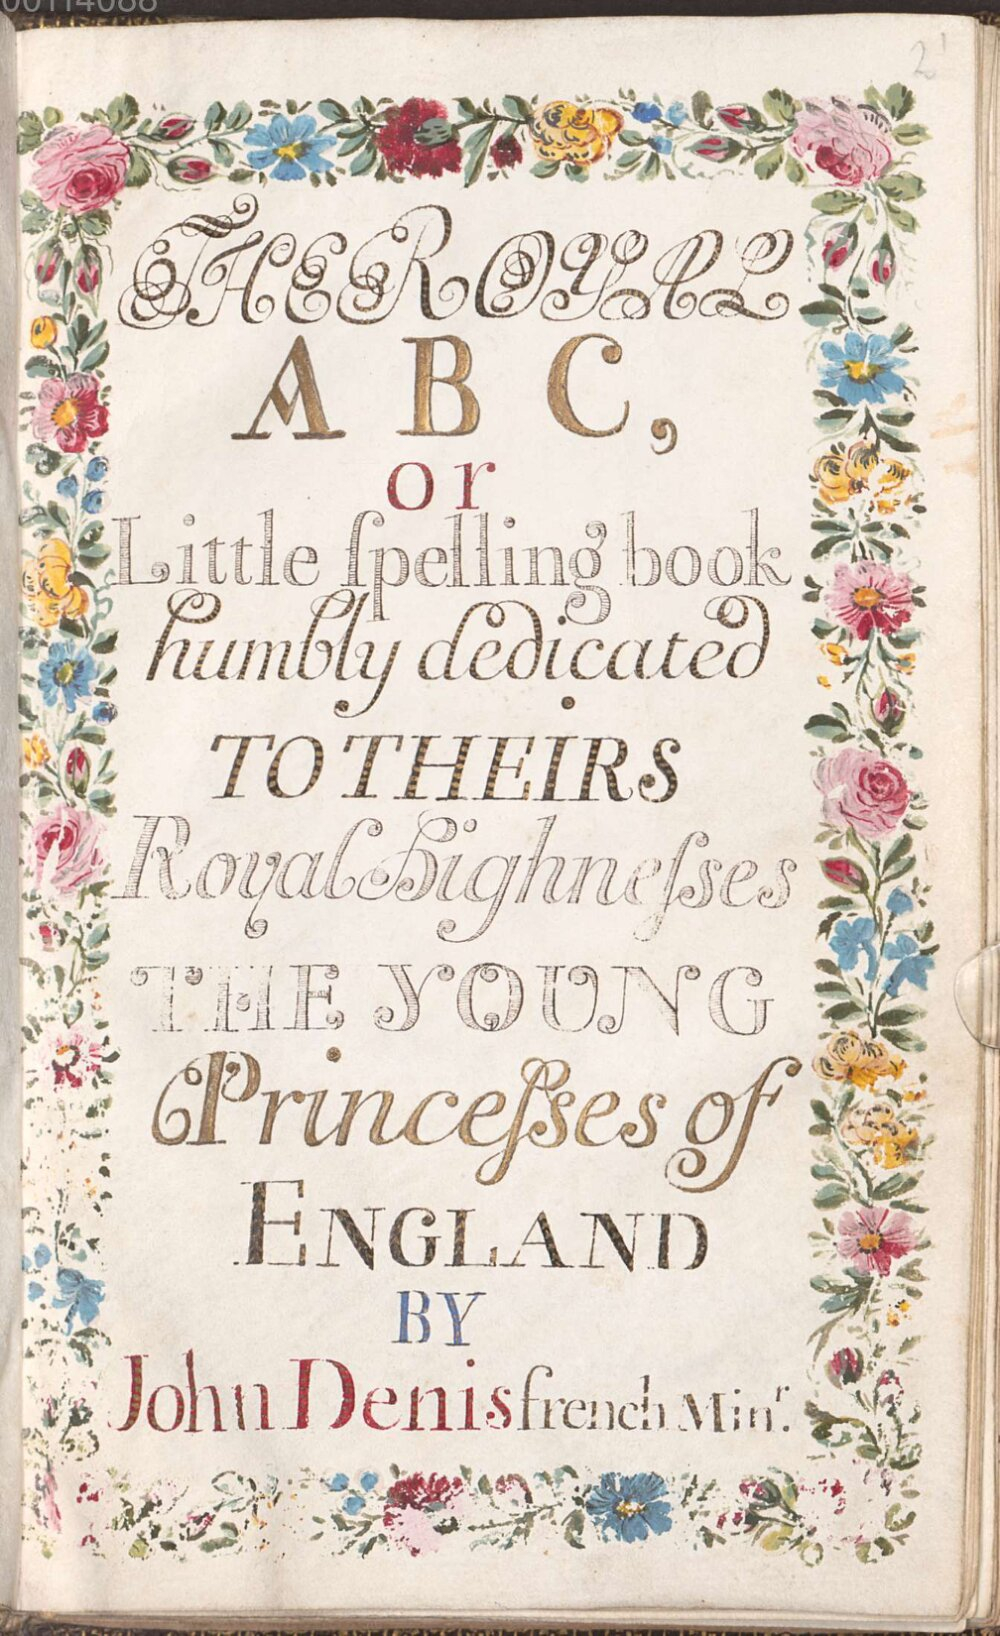 00114088
2
THE ROYAL
A B C,
or
Little ſpelling book
humbly dedicated
TO THEIRS
Royal Highneſses
THE YOUNG
Princeſses of
ENGLAND
BY
John Denis french Minr.